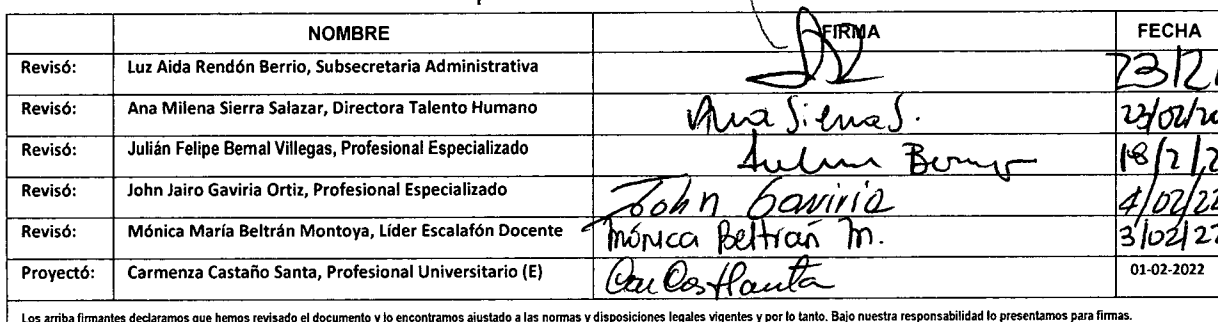 NOMBRE FIRMA FECHA
Revisó: Luz Aida Rendón Berrio, Subsecretaria Administrativa 23/2/
Revisó: Ana Milena Sierra Salazar, Directora Talento Humano Ana Sierra S. 23/02/20
Revisó: Julián Felipe Bernal Villegas, Profesional Especializado Julian Bernal 18/2/2
Revisó: John Jairo Gaviria Ortiz, Profesional Especializado John Gaviria 4/02/22
Revisó: Mónica María Beltrán Montoya, Líder Escalafón Docente Mónica Beltrán M. 3/02/22
Proyectó: Carmenza Castaño Santa, Profesional Universitario (E) 01-02-2022
Los arriba firmantes declaramos que hemos revisado el documento y lo encontramos ajustado a las normas y disposiciones legales vigentes y por lo tanto. Bajo nuestra responsabilidad lo presentamos para firmas.